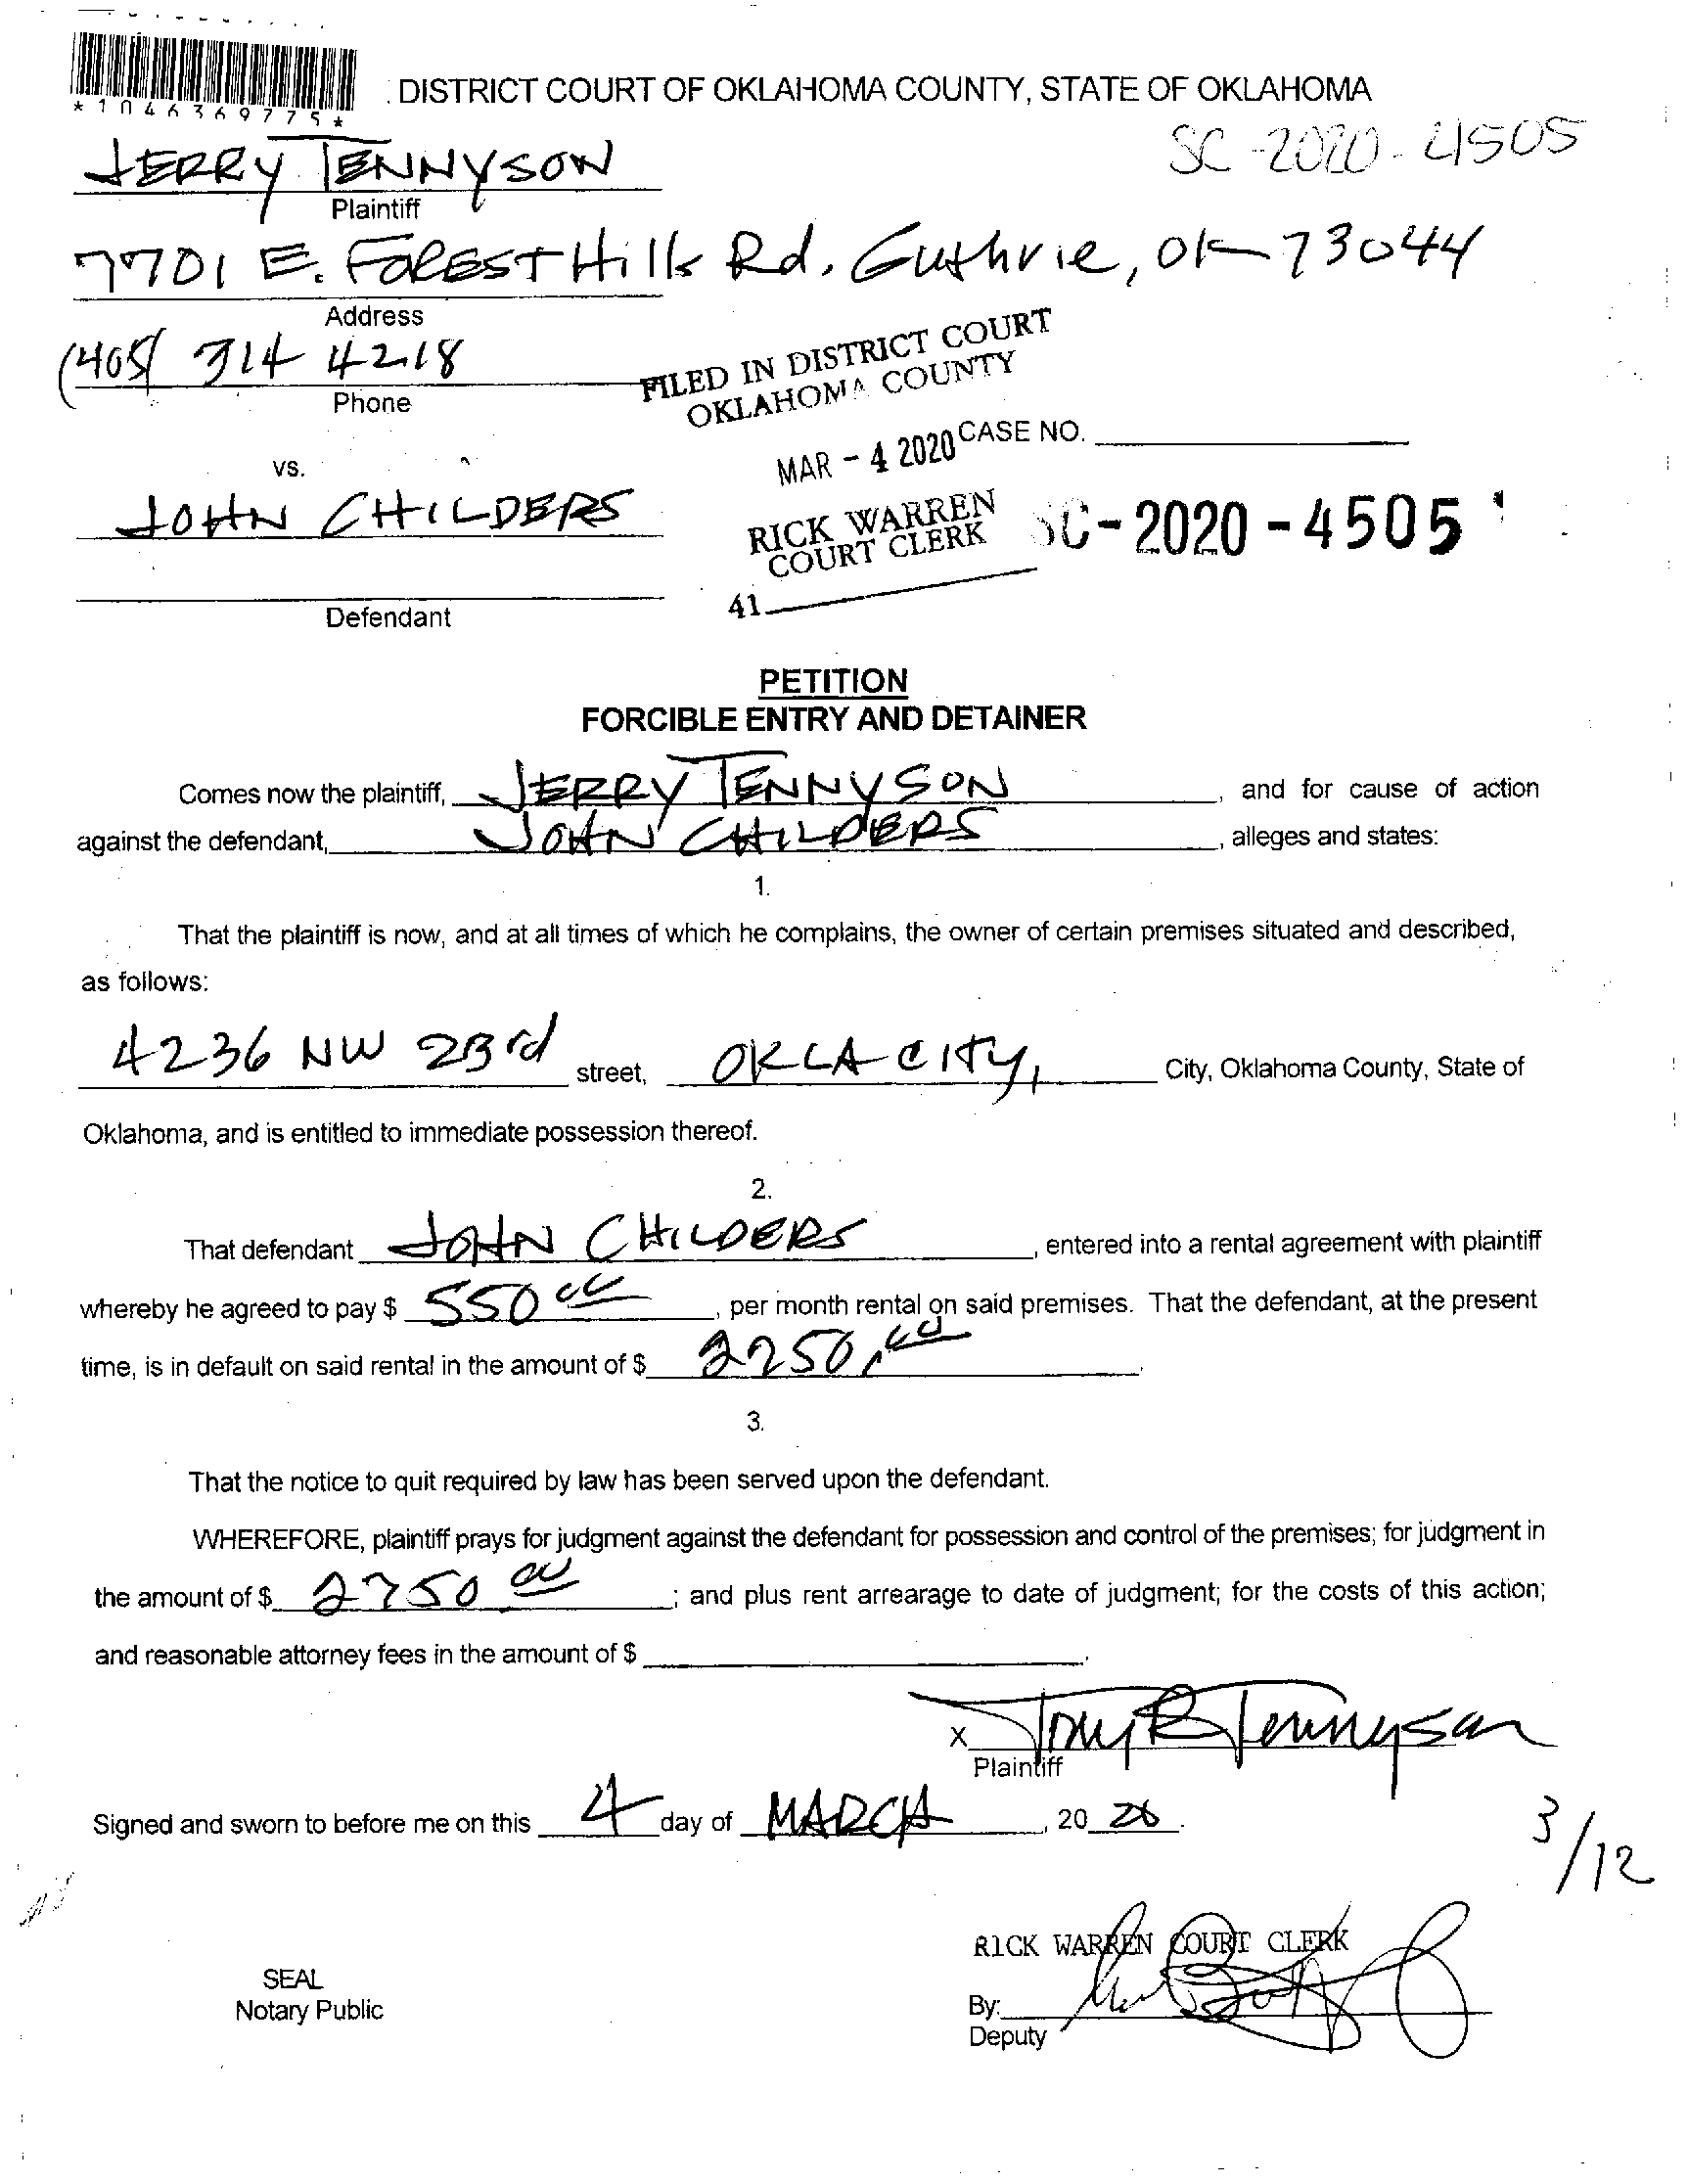 *1046369775*
DISTRICT COURT OF OKLAHOMA COUNTY, STATE OF OKLAHOMA
SC-2020-4505
JERRY TENNYSON
Plaintiff
7701 E. FOREST Hills Rd. Guthrie, OK 73044
Address
(405) 314 4218
Phone
FILED IN DISTRICT COURT
OKLAHOMA COUNTY
MAR - 4 2020
CASE NO.
vs.
JOHN CHILDERS
RICK WARREN
COURT CLERK
SC-2020-4505
41
Defendant
PETITION
FORCIBLE ENTRY AND DETAINER
Comes now the plaintiff, JERRY TENNYSON, and for cause of action
against the defendant, JOHN CHILDERS, alleges and states:
1.
That the plaintiff is now, and at all times of which he complains, the owner of certain premises situated and described,
as follows:
4236 NW 23rd street, OKLA CITY, City, Oklahoma County, State of
Oklahoma, and is entitled to immediate possession thereof.
2.
That defendant JOHN CHILDERS, entered into a rental agreement with plaintiff
whereby he agreed to pay $ 550 00, per month rental on said premises. That the defendant, at the present
time, is in default on said rental in the amount of $ 2750.00.
3.
That the notice to quit required by law has been served upon the defendant.
WHEREFORE, plaintiff prays for judgment against the defendant for possession and control of the premises; for judgment in
the amount of $ 2750 00; and plus rent arrearage to date of judgment; for the costs of this action;
and reasonable attorney fees in the amount of $ .
X Tennyson
Plaintiff
Signed and sworn to before me on this 4 day of MARCH, 20 20.
3/12
RICK WARREN COURT CLERK
SEAL
Notary Public
By:
Deputy